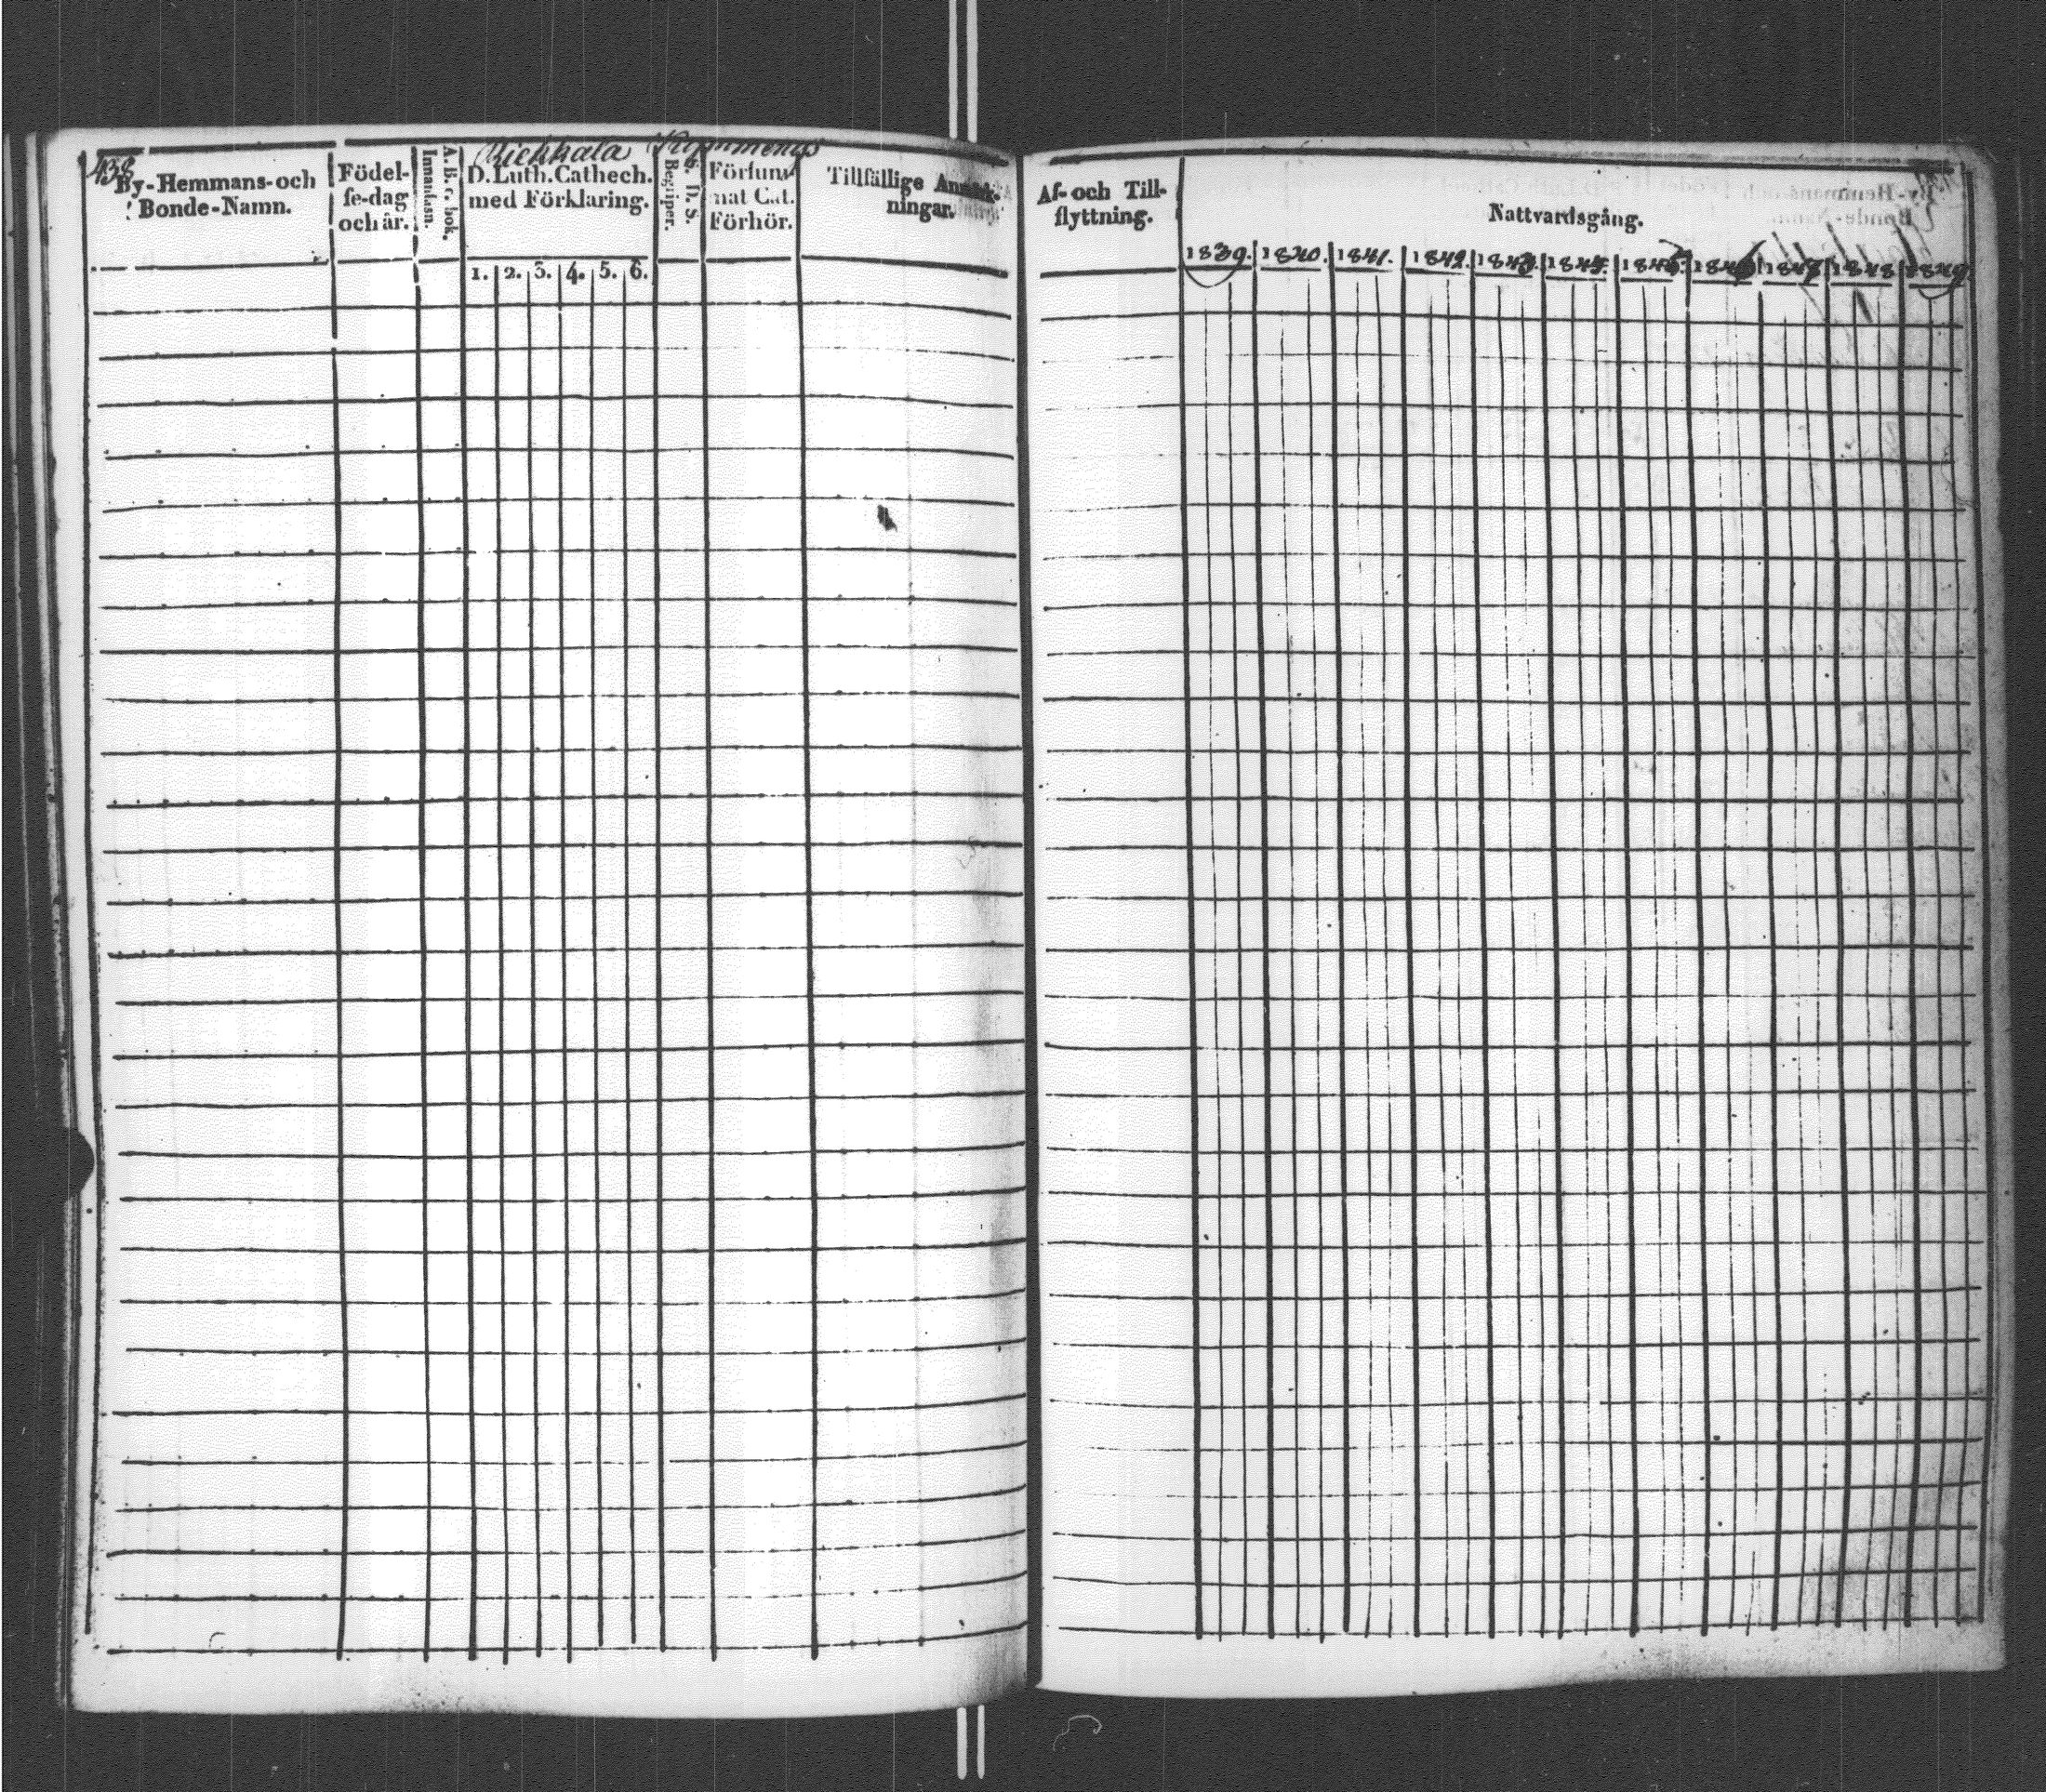 438
Riekkala
By-Hemmans-och
Bonde-Namn.
Födel-
se-dag
och år.
A. B. c. bok.
Innanläsn.
D. Luth. Cathech.
med Förklaring.
1. 2. 3. 4. 5. 6.
D. S.
Begriper.
Försum-
nat Cat.
Förhör.
Tillfällige Anmärk-
ningar.
Af- och Till-
flyttning.
Nattvardsgång.
1839. 1840. 1841. 1842. 1843. 1844. 1845. 1846 1847 1848 1849